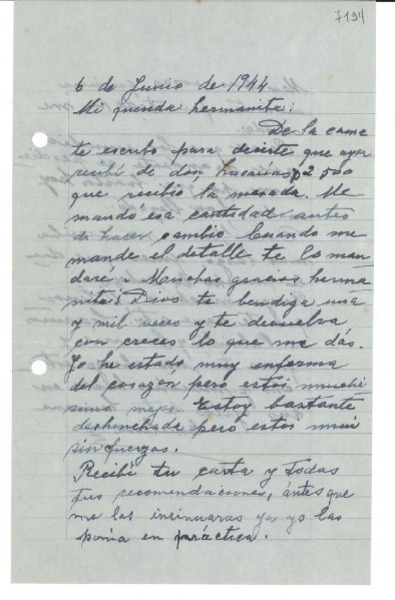 7194
6 de Junio de 1944
Mi querida hermanita:
De la cama
te escribo para decirte que ayer
recibí de don $2500
que recibió la mesada. Me
mandó esa cantidad antes
de hacer cambio. Cuando me
mande el detalle te lo man
daré. Muchas gracias herma
nita! Dios te bendiga una
y mil veces y te devuelva
con creces lo que me das.
Yo he estado muy enferma
del corazón pero estoi muchi
simo mejor. Estoy bastante
deshinchada pero estoi mui
sin fuerzas.
Recibí tu carta y todas
tus recomendaciones, ántes que
me las insinuaras ya yo las
ponía en práctica.